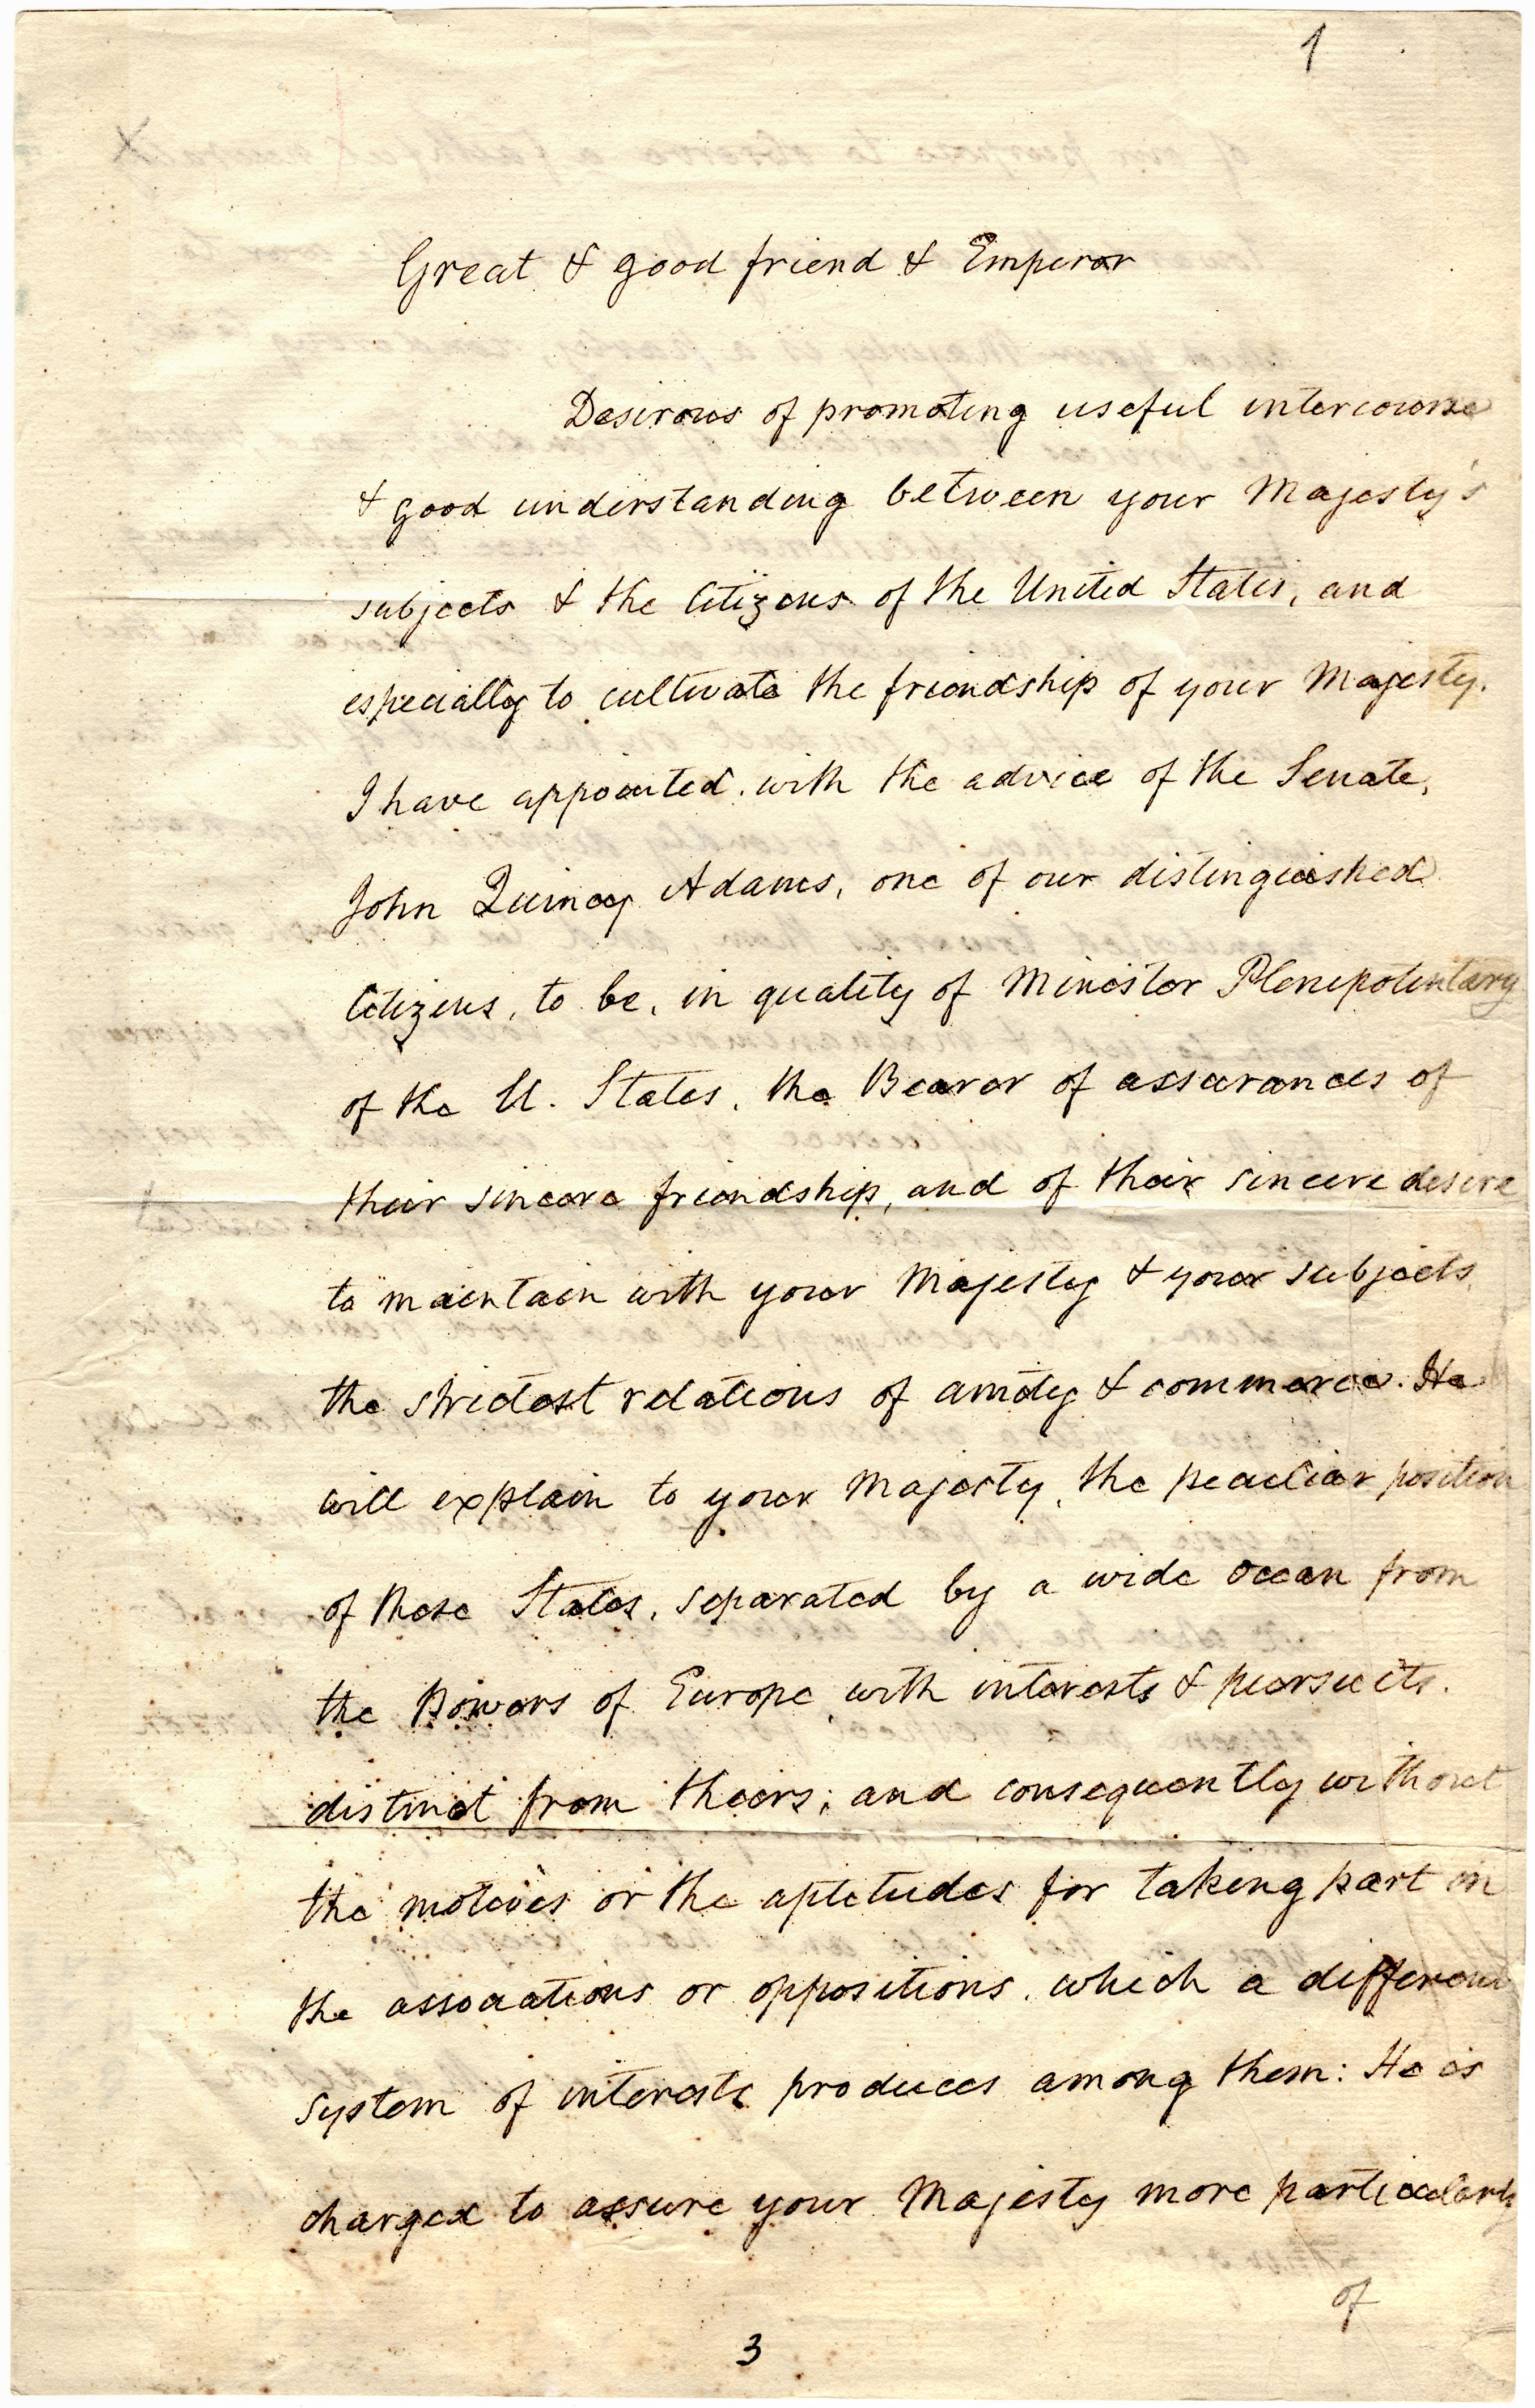 1
Great & good friend & Emperor
Desirous of promoting useful intercourse
& good understanding between your Majesty's
subjects & the Citizens of the United States, and
especially to cultivate the friendship of your Majesty.
I have appointed, with the advice of the Senate,
John Quincy Adams, one of our distinguished
Citizens, to be, in quality of Minister Plenipotentary
of the U. States, the Bearer of assurances of
their sincere friendship, and of their sincere desire
to maintain with your Majesty & your subjects
the strictest relations of amity & commerce. He
will explain to your Majesty, the peculiar position
of these States, separated by a wide ocean from
the Powers of Europe with interests & pursuits.
distinct from theirs; and consequently without
the motives or the aptitudes for taking part in
the associations or oppositions, which a different
system of interests produces among them: He is
charged to assure your Majesty more particularly
of
3